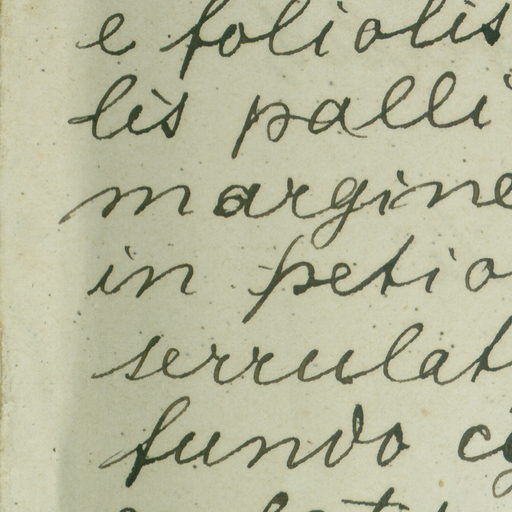 e foliolis
lis palli
margine
in petio
serrulat
fundo